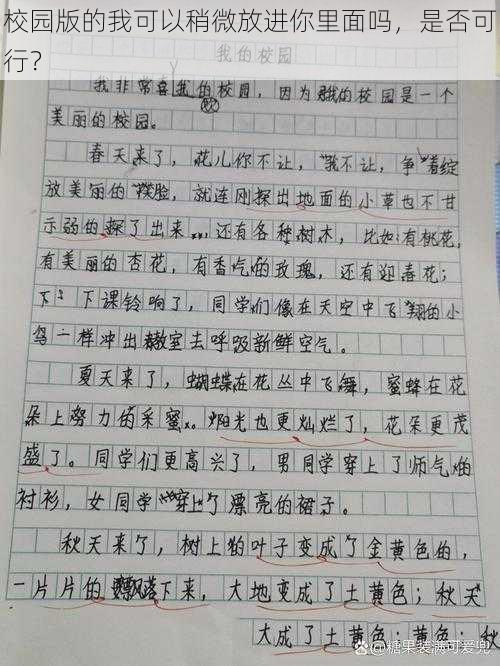 校园版的我可以稍微放进你里面吗，是否可
行？
我的校园
我非常喜我的校园，因为我的校园是一个
欢
美丽的校园。
春天来了，花儿你不让，我不让，争着绽
放美丽的笑脸，就连刚探出地面的小草也不甘
示弱的探了出来…，还有各种树木，比如：有桃花，
有美丽的杏花，有香气的玫瑰，还有迎春花；
下下课铃响了，同学们像在天空中飞翔的小
鸟一样冲出教室去呼吸新鲜空气。
夏天来了，蝴蝶在花丛中飞舞，蜜蜂在花
朵上努力的采蜜…。阳光也更灿烂了，花朵更茂
盛了。同学们更高兴了，男同学穿上了师气的
衬衫，女同学穿上了漂亮的裙子。
秋天来了，树上的叶子变成了金黄色的，
一片片的飘落下来，大地变成了土黄色；秋天
大成了土黄色；黄色；秋
@糖果装满可爱兜